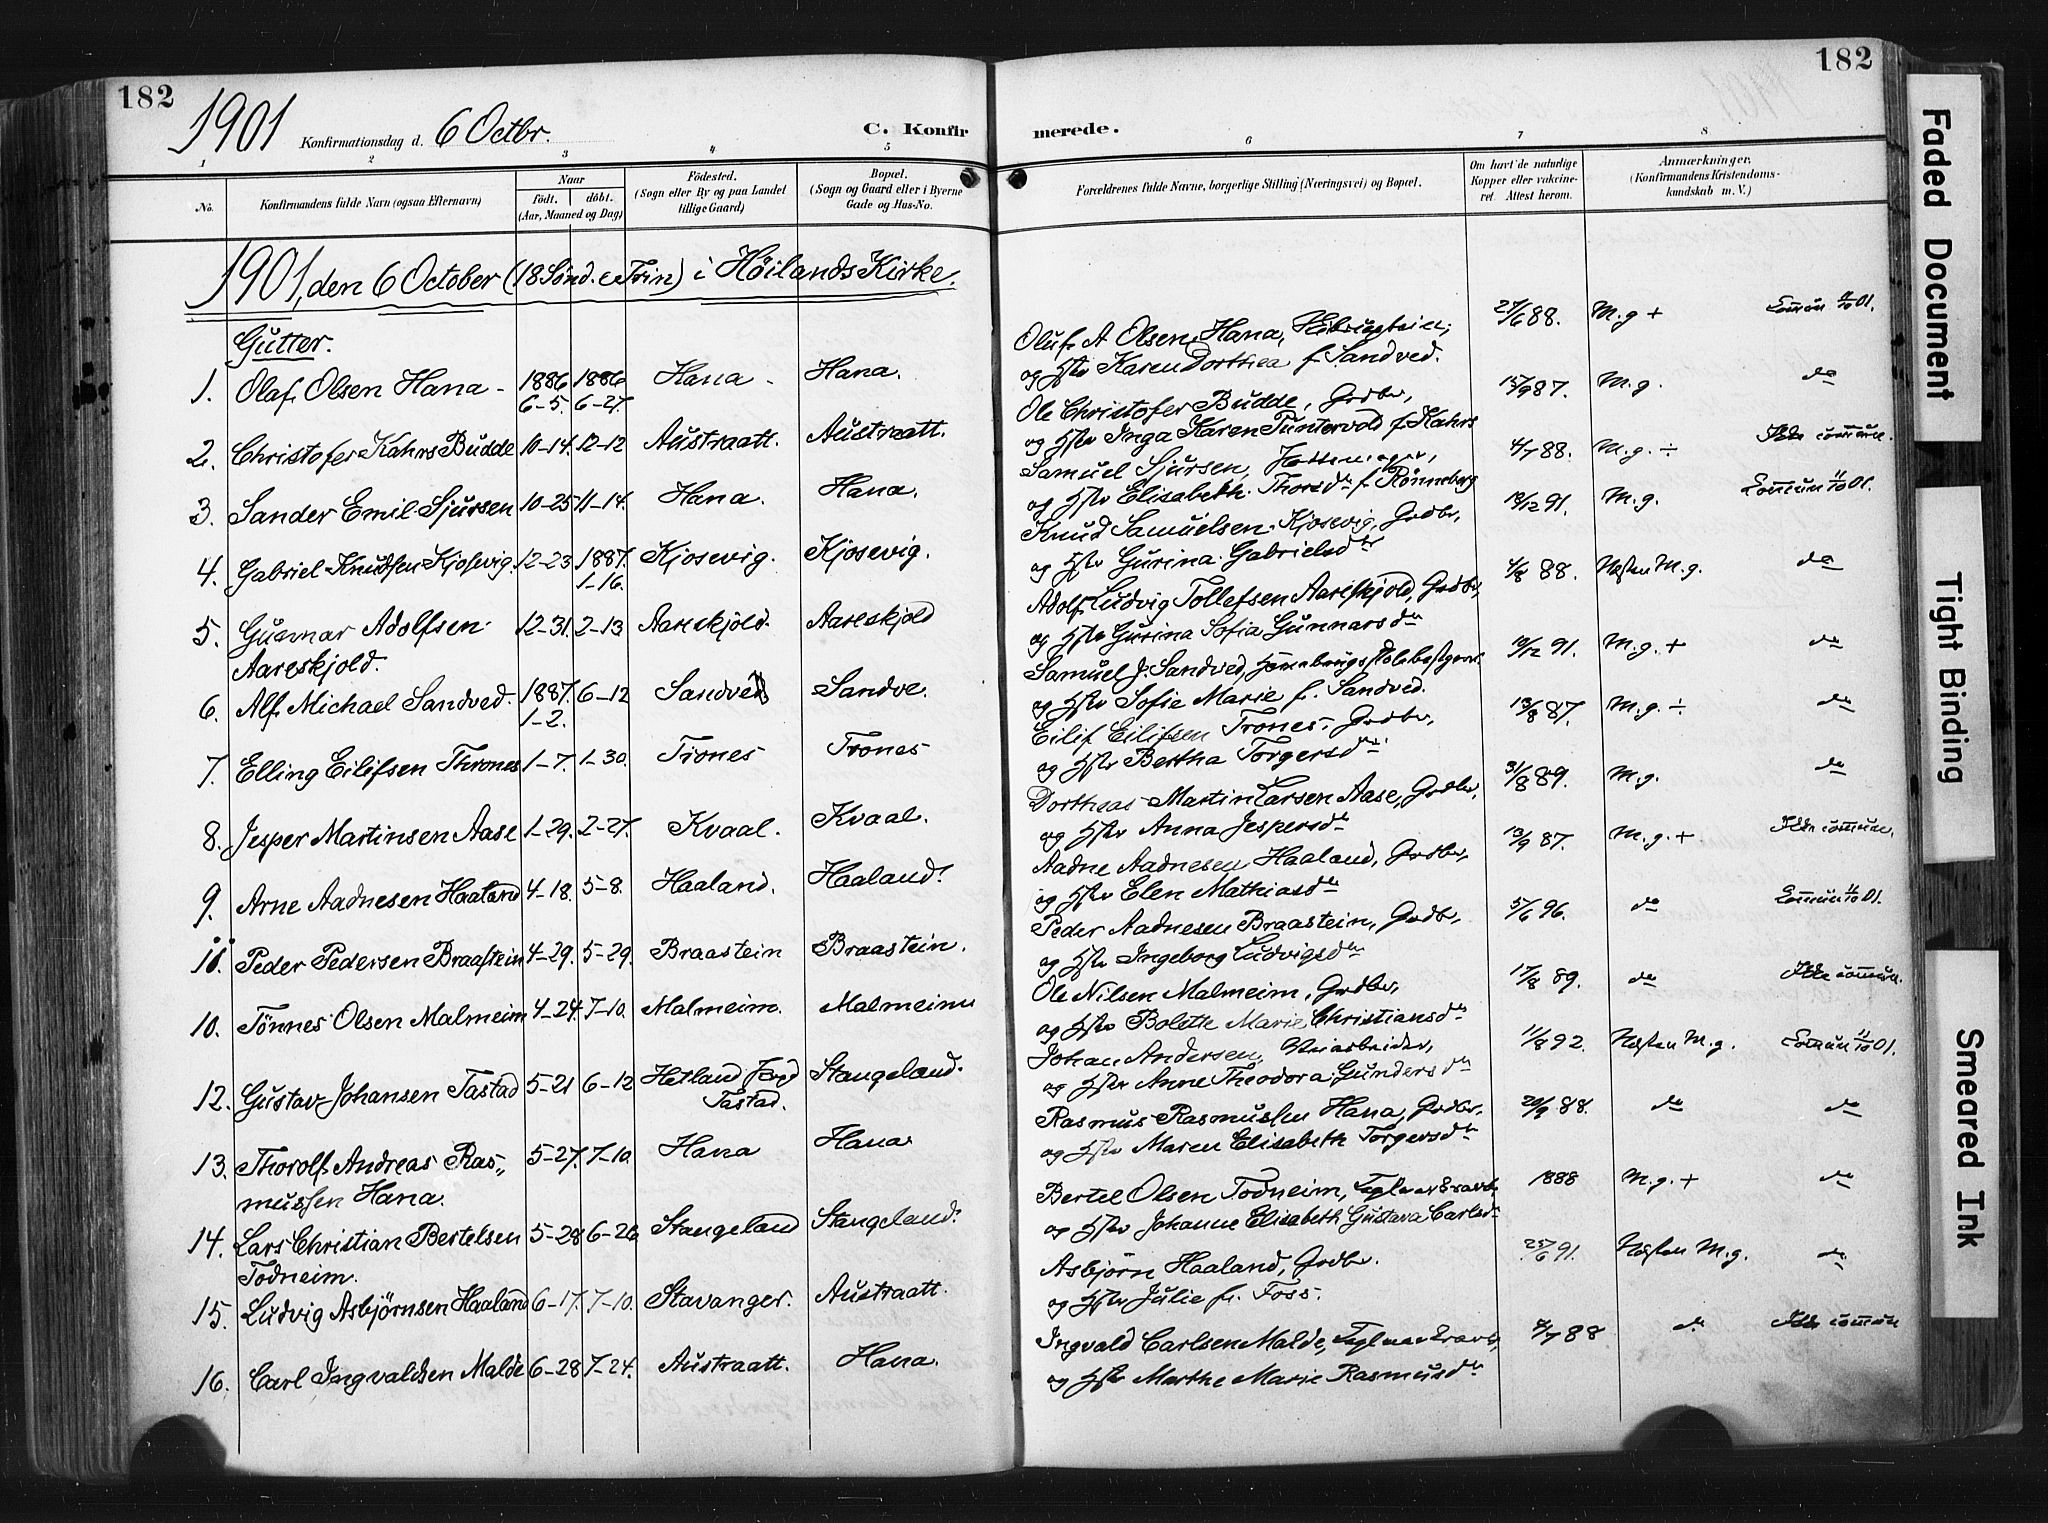 182
1901
Konfirmationsdag d. 6 Octbr.
C. Konfir
1 2 3 4 5
No.
Konfirmandens fulde Navn (ogsaa Efternavn)
Naar
födt. döbt.
(Aar, Maaned og Dag)
Födested.
(Sogn eller By og paa Landet
tillige Gaard)
Bopæl.
(Sogn og Gaard eller i Byerne
Gade og Hus-No.
1901, den 6 October (18 Sønd. e Trin) i Höilands Kirke.
Gutter.
1. Olaf Olsen Hana - 1886 6-5. 1886 6-27. Hana - Hana.
2. Christofer Kahrs Budde 10-14. 12-12 Austraatt. Austraatt.
3. Sander Emil Sjursen 10-25 11-14. Hana. Hana.
4. Gabriel Knudsen Kjosevig. 12-23 1887. 1-16. Kjosevig. Kjosevig.
5. Gunnar Adolfsen 12-31. 2-13 Aareskjold. Aareskjold
Aareskjold.
6. Alf Michael Sandved. 1887. 1-2. 6-12 Sandved Sandve.
7. Elling Eilifsen Thrones 1-7. 1-30. Trones Trones
8. Jesper Martinsen Aase 1-29. 2-27. Kvaal. Kvaal.
9. Arne Aadnesen Haaland 4-18. 5-8. Haaland. Haaland.
11. Peder Pedersen Braastein 4-29. 5-29. Braastein Braastein.
10. Tönnes Olsen Malmeim 4-24. 7-10. Malmeim. Malmeim
12. Gustav Johansen Tastad 5-21 6-12 Hetland Jørp Stangeland.
Tastad.
13. Thorolf Andreas Ras- 5-27. 7-10. Hana Hana
mussen Hana.
14. Lars Christian Bertelsen 5-28 6-26 Stangeland Stangeland.
Todneim.
15. Ludvig Asbjörnsen Haaland 6-17. 7-10. Stavanger. Austraatt.
16. Carl Ingvaldsen Malde 6-28 7-24. Austraatt. Hana.
182
merede.
6 7 8
Forældrenes fulde Navne, borgerlige Stilling (Næringsvei) og Bopæl.
Om havt de naturlige
Kopper eller vakcine-
ret. Attest herom.
Anmærkninger.
(Konfirmandens Kristendoms-
kundskab m. V.)
Oluf A Olsen Hana, 27/6 88. M.g + Commun 11/10 01.
og Hstr Karen Dorthea f. Sandved.
Ole Christofer Budde, Grdbr, 15/9 87. M.g. do
og Hstr Inga Karen Tuntervold f. Kahrs
Samuel Sjursen, 4/7 88. M.g. ÷ Ikke commun.
og Hstr Elisabeth Thorsdr f. Rönneberg
Knud Samuelsen Kjosevig, Grdbr, 12/12 91. M.g. Commun 11/10 01.
og Hstr Gurina Gabrielsdtr
Adolf Ludvig Tollefsen Aareskjold, Grdbr, 4/8 88. Næsten M.g. do
og Hstr Gurina Sofia Gunnarsdr
Samuel J. Sandved, 10/12 91. M.g. + do
og Hstr Sofie Marie f. Sandved.
Eilif Eilifsen Trones, Grdbr, 13/8 87. M.g. ÷ do
og Hstr Bertha Torgersdr
Dortheas Martin Larsen Aase, Grdbr, 31/8 89. M.g. do
og Hstr Anna Jespersdr
Aadne Aadnesen Haaland, Grdbr, 13/9 87. M.g. + Ikke commun.
og Hstr Elen Mathiasdr
Peder Aadnesen Braastein, Grdbr, 5/6 96. do Commun 11/10 01.
og Hstr Ingeborg Ludvigsdr
Ole Nilsen Malmeim, Grdbr, 17/8 89. do Ikke commun.
og Hstr Bolette Marie Christiansdr
Johan Andersen, Veiarbeider, 11/8 92. Næsten M.g. Commun 11/10 01.
og Hstr Anne Theodora Gundersdr
Rasmus Rasmussen Hana, Grdbr. 20/9 88. do do
og Hstr Maren Elisabeth Torgersdr
Bertel Olsen Todneim, 1888 M.g. + do
og Hstr Johanne Elisabeth Gustava Carlsdr
Asbjörn Haaland, Grdbr. 25/6 91. Næsten M.g. do
og Hstr Julie f. Foss.
Ingvald Carlsen Malde, 4/7 88 do Ikke commun
og Hstr Marthe Marie Rasmusdr
Faded Document
Tight Binding
Smeared Ink